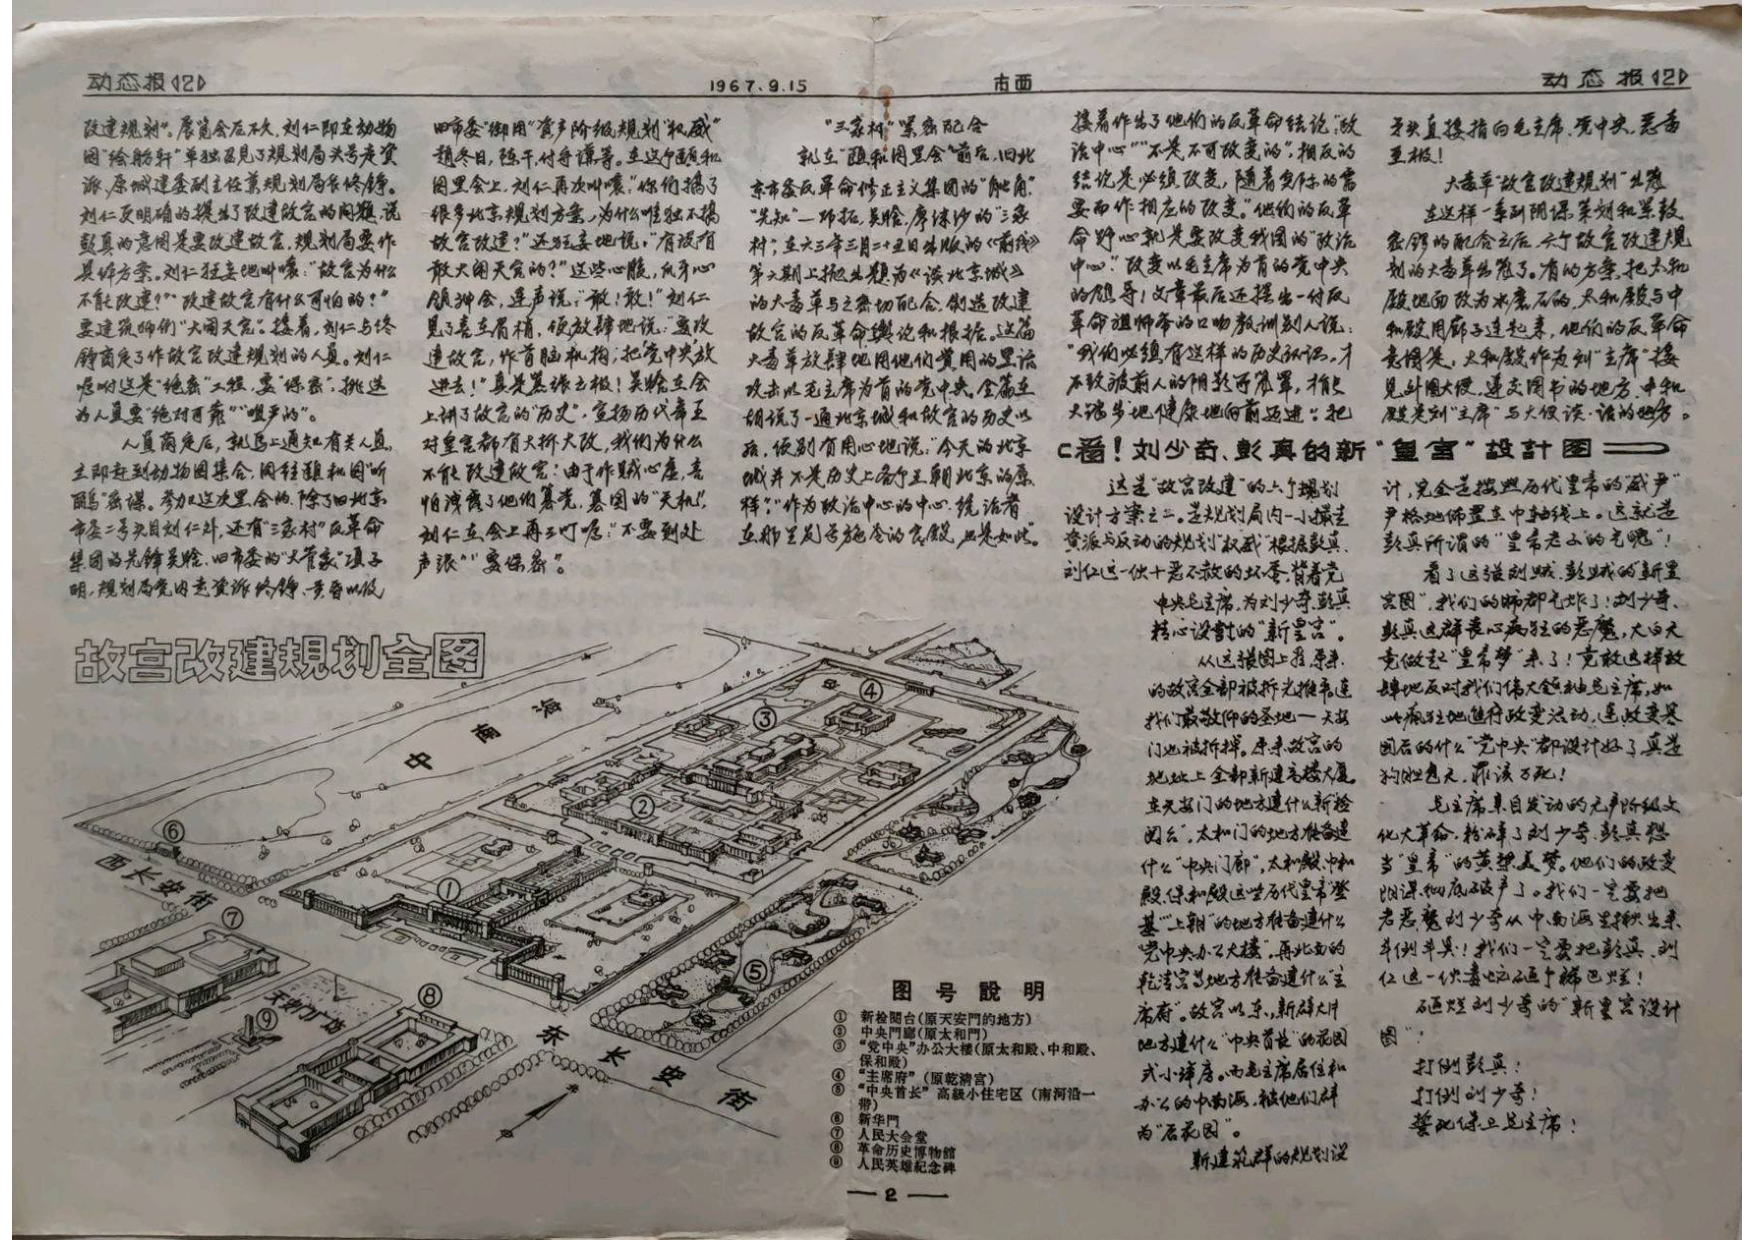 动态报〈2〉
1967.9.15
市西
动态报〈2〉
改建规划”。展览会后不久，刘仁即在动物
园“绘舫轩”单独召见了规划局头号走资
派、原城建委副主任兼规划局长佟铮。
刘仁更明确的提出了改建故宫的问题，说
彭真的意图是要改建故宫，规划局要作
具体方案。刘仁狂妄地叫嚷：“故宫为什么
不能改建？”“改建故宫有什么可怕的？”
要建筑师们“大闹天宫”。接着，刘仁与佟
铮商定了作故宫改建规划的人员。刘仁
嘱咐这是“绝密”工程，要“保密”，挑选
为人员要“绝对可靠”“嘴严的”。
人员商定后，就马上通知有关人员，
立即赶到动物园集合，同往颐和园“听
鹂”密谋。参加这次黑会的，除了旧北京
市委二号头目刘仁外，还有“三家村”反革命
集团的先锋吴晗、旧市委的“大管家”项子
明，规划局党内走资派佟铮、黄昏以及
旧市委“御用”资产阶级规划“权威”
赵冬日，陈干，付守谦等。在这个颐和
园黑会上，刘仁再次叫嚷：“你们搞了
很多北京规划方案，为什么唯独不搞
故宫改建？”还狂妄地说：“有没有
敢大闹天宫的？”这些心腹，爪牙心
领神会，连声说：“敢！敢！”刘仁
见了喜在眉梢，便放肆地说：“要改
建故宫，作首脑机构；把‘党中央’放
进去！”真是嚣张之极！吴晗在会
上讲了故宫的“历史”，宣扬历代帝王
对皇宫都有大拆大改，我们为什么
不能改建故宫！由于作贼心虚，害
怕泄露了他们篡党，篡国的“天机”，
刘仁在会上再三叮嘱：“不要到处
声张”“要保密”。
“三家村”紧密配合
就在“颐和园黑会”前后，旧北
京市委反革命修正主义集团的“触角”
“先知”—邓拓，吴晗，廖沫沙的“三家
村；在六三年三月二十五日出版的《前线》
第六期上抛出题为《谈北京城》
的大毒草与之密切配合，制造改建
故宫的反革命舆论和根据。这篇
大毒草放肆地用他们黄用的黑话
攻击以毛主席为首的党中央。全篇在
胡说了一通北京城和故宫的历史以
后，便别有用心地说：“今天的北京
城并不是历史上各个王朝北京的原
样”；“作为政治中心的中心，统治者
在那里发号施令的宫殿，也是如此”。
接着作出了他们的反革命结论“政
治中心”“不是不可改变的”；相反的
结论是必须改变，随着实际的需
要而作相应的改变。”他们的反革
命野心就是要改变我国的“政治
中心”“改变以毛主席为首的党中央
的领导！文章最后还摆出一付反
革命祖师爷的口吻教训别人说：
“我们必须有这样的历史知识，才
不致被前人的阴影所笼罩，才能
大踏步地健康地向前迈进”；把
矛头直接指向毛主席、党中央，恶毒
至极！
大毒草“故宫改建规划”出笼
在这样一系列阴谋策划和紧鼓
密锣的配合之后，六个故宫改建规
划的大毒草出笼了。有的方案，把太和
殿地面改为水磨石的，太和殿与中
和殿用廊子连起来，他们的反革命
意图是，太和殿作为刘“主席”接
见外国大使，递交国书的地方，中和
殿是刘“主席”与大使谈话的地方。
看！刘少奇、彭真的新“皇宫”設計图
这是“故宫改建”的六个规划
设计方案之二。是规划局内一小撮走
资派与反动的规划“权威”根据彭真、
刘仁这一伙十恶不赦的坏蛋，背着党
中央毛主席，为刘少奇、彭真
精心设计的“新皇宫”。
从这张图上看，原来
的故宫全部被拆光推平，连
我们最敬仰的圣地—天安
门也被拆掉。原来故宫的
地址上全部新建高楼大厦。
在天安门的地方建什么“新检
阅台”，太和门的地方准备建
什么“中央门廊”，太和殿、中和
殿、保和殿这些历代皇帝“登
基”“上朝”的地方准备建什么
“党中央办公大楼”，再北面的
乾清宫等地方准备建什么“主
席府”。故宫以东，新辟大片
地方建什么“中央首长”的花园
式小洋房。而毛主席居住和
办公的中南海，被他们辟
为“后花园”。
新建筑群的规划设
计，完全是按照历代皇帝的“威严”
严格地佈置在中轴线上。这就是
彭真所谓的“皇帝老子的气魄”！
看了这张刘贼、彭贼的“新皇
宫图”，我们的肺都气炸了！刘少奇、
彭真这群丧心病狂的恶魔，大白天
竟做起“皇帝梦”来了！竟敢这样放
肆地反对我们伟大领袖毛主席，如
此疯狂地进行政变活动，连政变篡
国后的什么“党中央”都设计好了，真是
狗胆包天，罪该万死！
毛主席亲自发动的无产阶级文
化大革命，粉碎了刘少奇、彭真想
当“皇帝”的黄粱美梦。他们的政变
阴谋彻底破产了。我们一定要把
老恶魔刘少奇从中南海里揪出来
斗倒斗臭！我们一定要把彭真、刘
仁这一伙毒蛇砸个稀巴烂！
砸烂刘少奇的“新皇宫设计
图”！
打倒彭真！
打倒刘少奇！
誓死保卫毛主席！
故宫改建規划全图
中南海
④
③
②
①
⑥
西长安街
⑦
⑤
⑧
天安门广场
⑨
东长安街
图号說明
① 新检閱台（原天安門的地方）
② 中央門廊（原太和門）
③ “党中央”办公大楼（原太和殿、中和殿、
保和殿）
④ “主席府”（原乾清宫）
⑤ “中央首长”高級小住宅区（南河沿一
带）
⑥ 新华門
⑦ 人民大会堂
⑧ 革命历史博物館
⑨ 人民英雄紀念碑
— 2 —